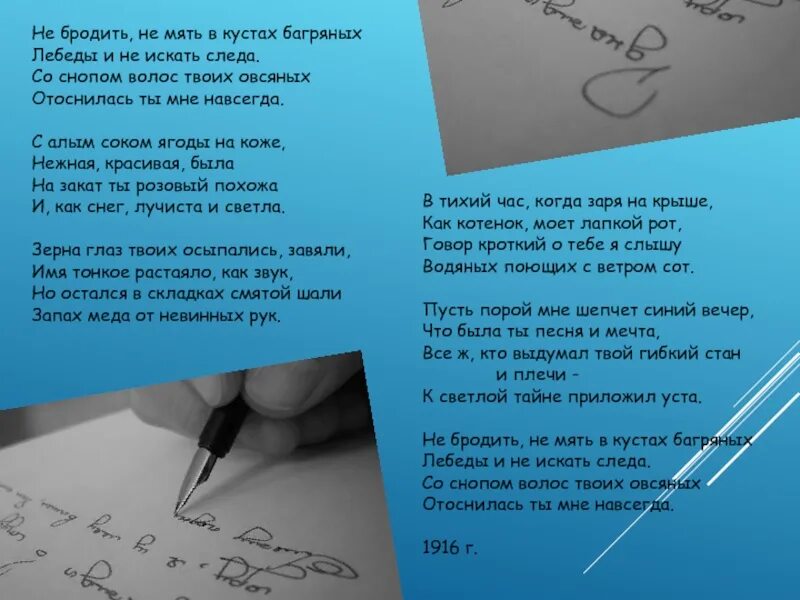 Не бродить, не мять в кустах багряных
Лебеды и не искать следа.
Со снопом волос твоих овсяных
Отоснилась ты мне навсегда.
С алым соком ягоды на коже,
Нежная, красивая, была
На закат ты розовый похожа
И, как снег, лучиста и светла.
Зерна глаз твоих осыпались, завяли,
Имя тонкое растаяло, как звук,
Но остался в складках смятой шали
Запах меда от невинных рук.
В тихий час, когда заря на крыше,
Как котенок, моет лапкой рот,
Говор кроткий о тебе я слышу
Водяных поющих с ветром сот.
Пусть порой мне шепчет синий вечер,
Что была ты песня и мечта,
Все ж, кто выдумал твой гибкий стан
и плечи -
К светлой тайне приложил уста.
Не бродить, не мять в кустах багряных
Лебеды и не искать следа.
Со снопом волос твоих овсяных
Отоснилась ты мне навсегда.
1916 г.